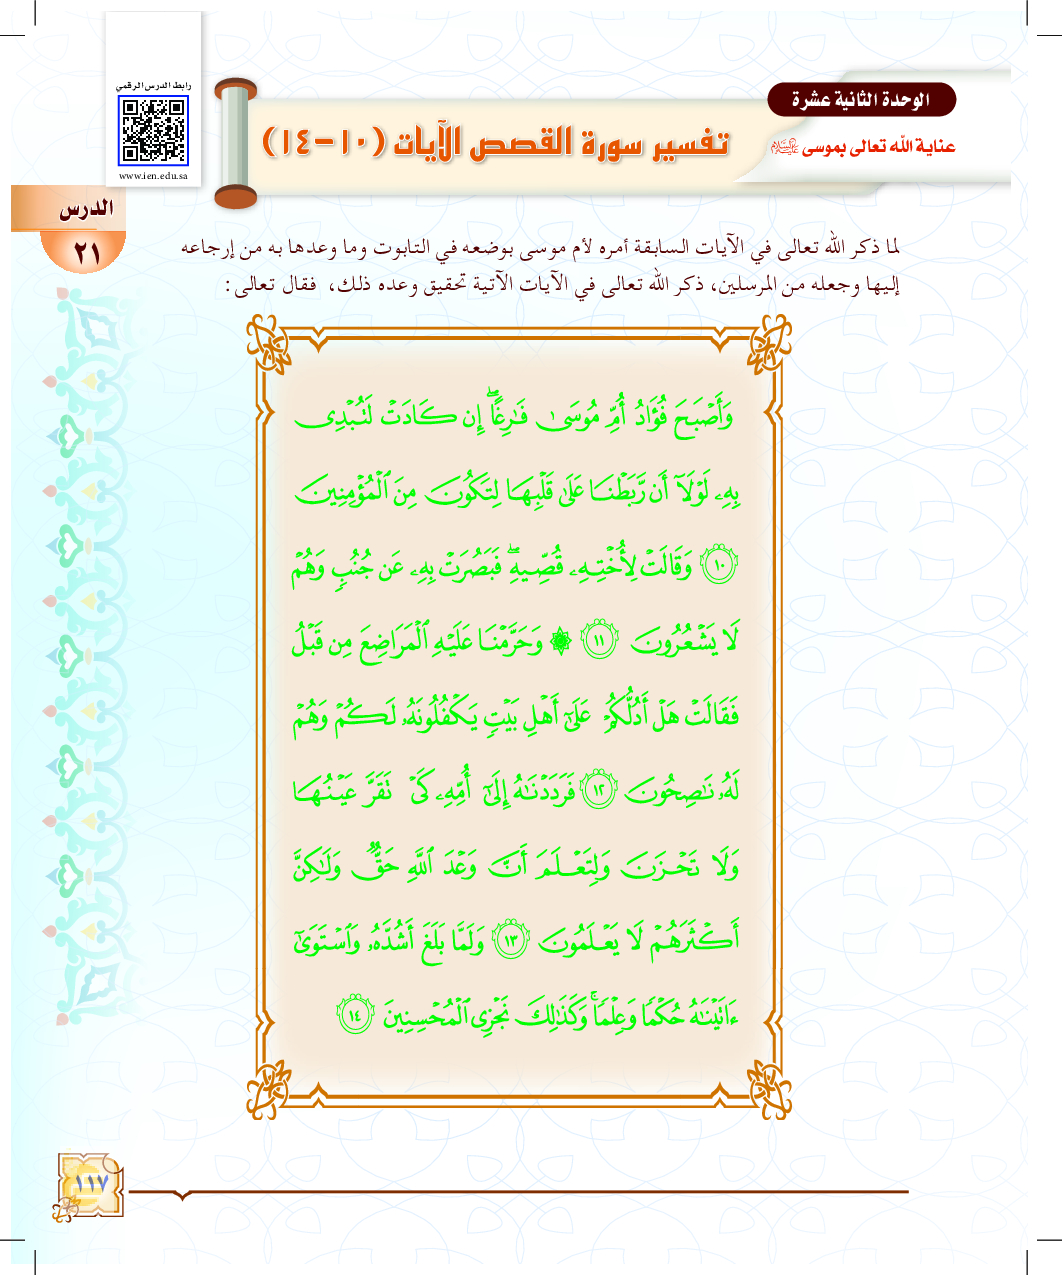 رابط الدرس الرقمي
www.ien.edu.sa
الوحدة الثانية عشرة
عناية الله تعالى بموسى ﷺ
تفسير سورة القصص الآيات (١٠-١٤)
الدرس
٢١
لما ذكر الله تعالى في الآيات السابقة أمره لأم موسى بوضعه في التابوت وما وعدها به من إرجاعه
إليها وجعله من المرسلين، ذكر الله تعالى في الآيات الآتية تحقيق وعده ذلك، فقال تعالى:
وَأَصۡبَحَ فُؤَادُ أُمِّ مُوسَىٰ فَٰرِغًاۖ إِن كَادَتۡ لَتُبۡدِي
بِهِۦ لَوۡلَآ أَن رَّبَطۡنَا عَلَىٰ قَلۡبِهَا لِتَكُونَ مِنَ ٱلۡمُؤۡمِنِينَ
١٠ وَقَالَتۡ لِأُخۡتِهِۦ قُصِّيهِۖ فَبَصُرَتۡ بِهِۦ عَن جُنُبٖ وَهُمۡ
لَا يَشۡعُرُونَ ١١ ۞ وَحَرَّمۡنَا عَلَيۡهِ ٱلۡمَرَاضِعَ مِن قَبۡلُ
فَقَالَتۡ هَلۡ أَدُلُّكُمۡ عَلَىٰٓ أَهۡلِ بَيۡتٖ يَكۡفُلُونَهُۥ لَكُمۡ وَهُمۡ
لَهُۥ نَٰصِحُونَ ١٢ فَرَدَدۡنَٰهُ إِلَىٰٓ أُمِّهِۦ كَيۡ تَقَرَّ عَيۡنُهَا
وَلَا تَحۡزَنَ وَلِتَعۡلَمَ أَنَّ وَعۡدَ ٱللَّهِ حَقّٞ وَلَٰكِنَّ
أَكۡثَرَهُمۡ لَا يَعۡلَمُونَ ١٣ وَلَمَّا بَلَغَ أَشُدَّهُۥ وَٱسۡتَوَىٰٓ
ءَاتَيۡنَٰهُ حُكۡمٗا وَعِلۡمٗاۚ وَكَذَٰلِكَ نَجۡزِي ٱلۡمُحۡسِنِينَ ١٤
١١٧